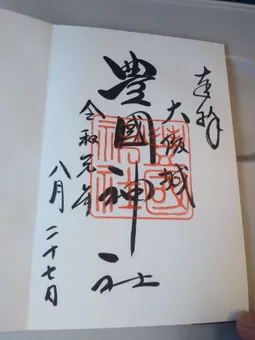 奉拝
大阪城
豊國神社
令和元年
八月二十七日